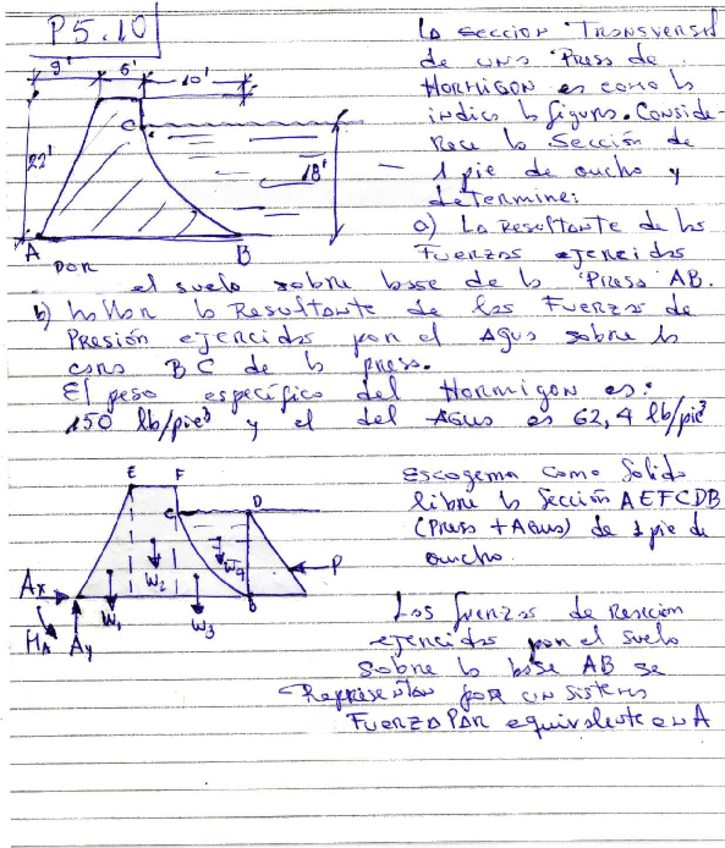 P5.10
La seccion Transversal
de una Presa de
HORMIGON es como lo
indica la figura. Conside-
Rece la Sección de
1 pie de ancho y
determine:
9' 6' 10'
C
22'
18'
A B
a) La Resultante de las
Fuerzas ejercidas
por
el suelo sobre base de la Presa AB.
b) hallar la Resultante de las Fuerzas de
Presión ejercidas por el Agua sobre la
cara BC de la presa.
El peso específico del Hormigon es:
150 lb/pie³ y el del Agua es 62,4 lb/pie³
E F
C D
W1 W2 W3 W4
P
B
Ax
MA Ay
Escogemos como Solido
libre la Sección AEFCDB
(Presa + Agua) de 1 pie de
ancho.
Las fuerzas de Reacción
ejercidas por el suelo
sobre la base AB se
Representan por un sistema
Fuerza PAR equivalente en A